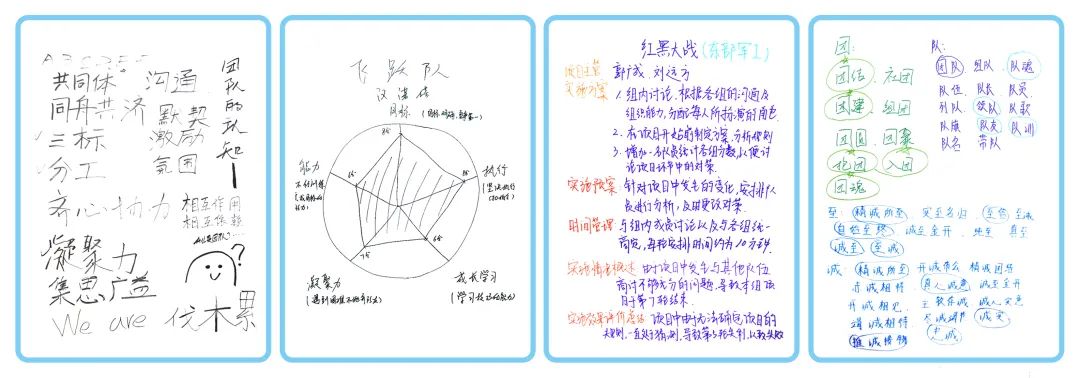 ABCDEF
共同体 沟通
同舟共济 默契
三标 激励
分工 氛围
齐心协力
凝聚力
集思广益
We are 伐木累
团队的认知
相互作用
相互依赖
什么是团队?
?
飞跃队
汉谋伟
目标
能力
执行
凝聚力
成长学习
85
85
65
75
65
红黑大战(东部军工)
项目主管 郭广成 刘远方
实施方案 1.组内讨论,根据各组的沟通及
组织能力,分配每人所扮演的角色
2.在项目开始前制定方案,分析规则
3.增加一名队员统计各组分数,以便讨
论项目环节中的对策.
实施预案 针对项目中发生的变化,安排队
员进行分析,及时更改对策.
时间管理 与组内成员讨论以及与各组统一
商定,再程安排时间约为10分钟.
实施情况概述 由于项目中发生与其他队伍
商讨不够充分的问题,导致本组项
目于第7轮结束.
实施效果评价总结 项目中由于无法确定项目的
大规则,一直处于猜测,导致第5轮失利,以致失败
团:
团结 社团
团建 组团
团圆 团聚
抱团 入团
团魂
队:
团队 组队 队魂
队伍 队长 队员
列队 领队 队歌
队旗 队友 队训
队名 带队
至: 精诚所至 实至名归 至信 至诚
自始至终 诚至全开 纯至 真至
诚至 至诚
诚: 精诚所至 开诚布公 精诚团结
赤诚相待 真人诚意 诚至全开
开诚相见 主敬存诚 诚人实意
竭诚相待 尽诚竭节 诚实
推诚接物 忠诚